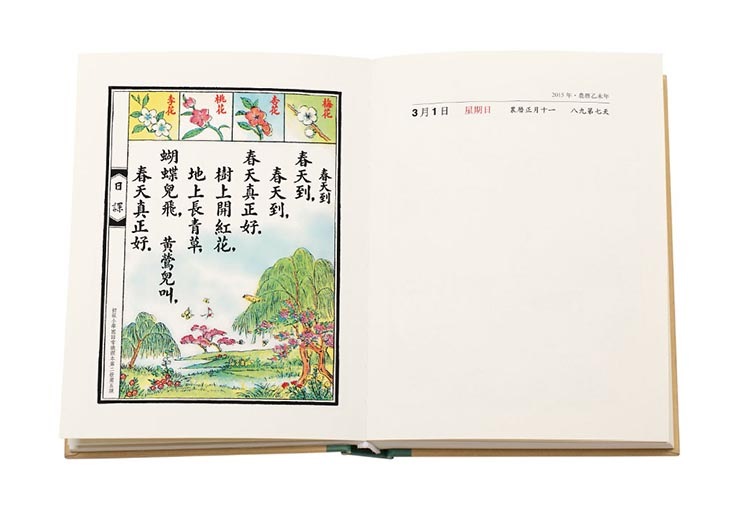 梅花
杏花
桃花
李花
春天到
春天到,
春天到,
春天真正好.
樹上開紅花,
地上長青草,
蝴蝶兒飛, 黃鶯兒叫,
春天真正好.
日課
2015 年・農曆乙未年
3月1日 星期日 農曆正月十一 八九第七天